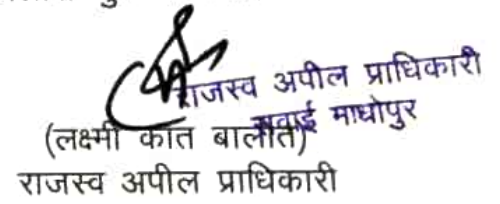 राजस्व अपील प्राधिकारी
सवाई माधोपुर
(लक्ष्मी कांत बालोत)
राजस्व अपील प्राधिकारी